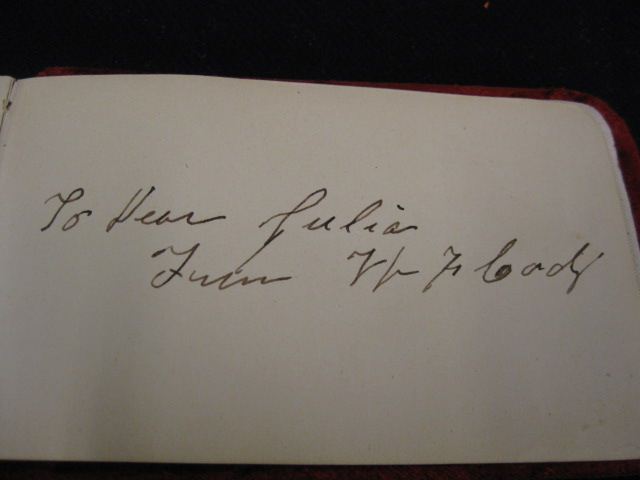 To Dear Julia
From Wm F Cody